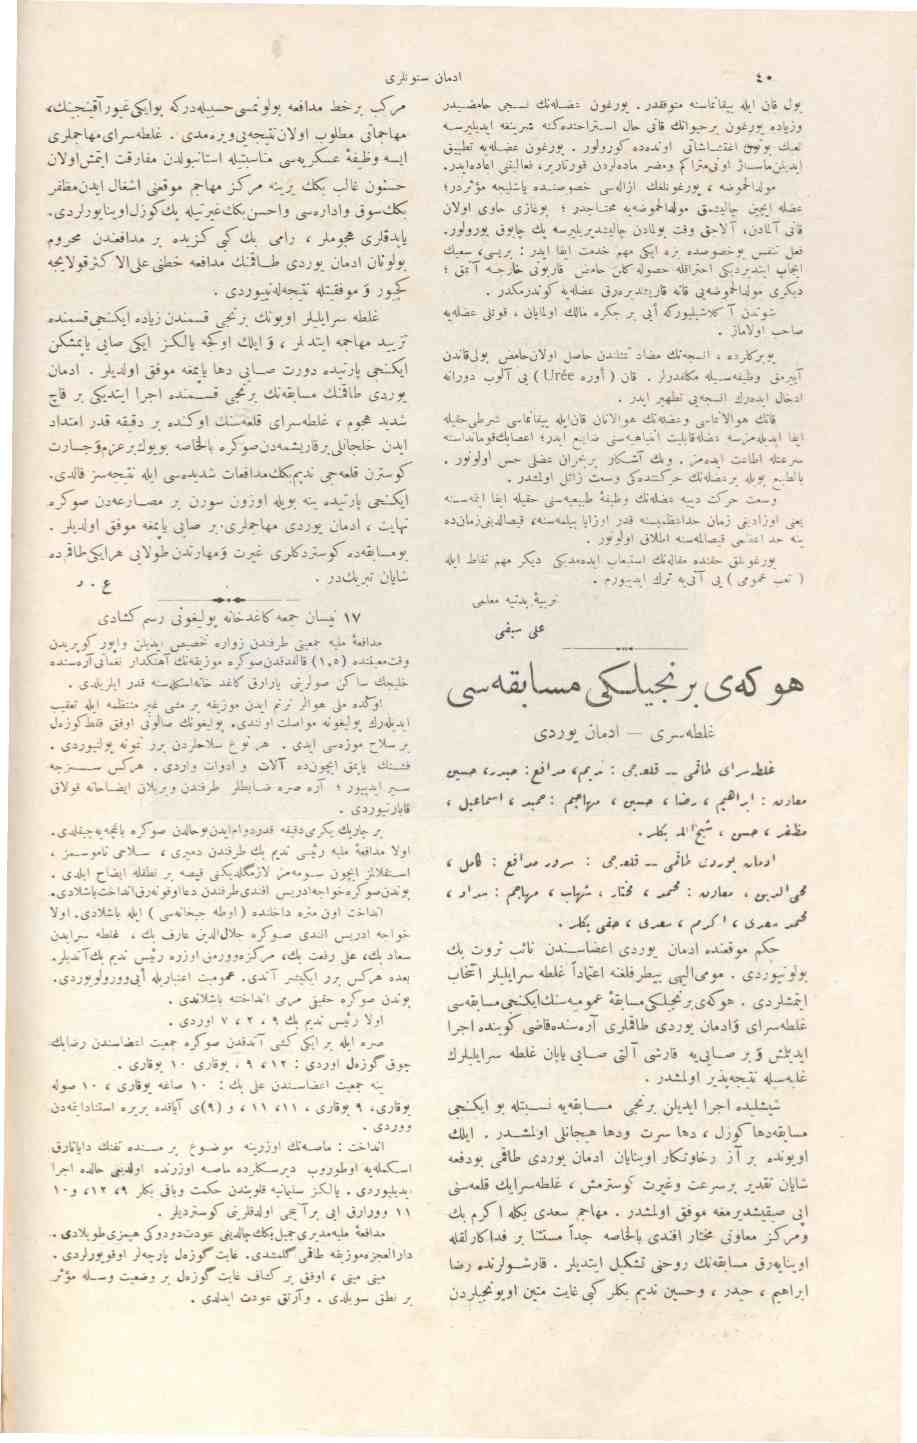 ٤٠
ادمان سنونلری
یول قان ایله بیقاتماسنه متوقفدر . یورغون عضله‌نك نسجی حامضیدر
وزیاده یورغون برحیوانك قانی حال استراحتده‌كنه شرینغه ایدیلیرسه
ایدیلن ماساژ اونی متراكم ومضر ماده‌لردن قورتاریر، فعالیتنی اعاده ایدر.
مولدالحموضه ، یورغونلغك ازاله‌سی خصوصنده باشلیجه مؤثردر؛
عضله ایچین چالیشمق مولدالحموضه‌یه محتاجدر ؛ بوغازی حاوی اولان
قانی آلمادن، آلاجق وقت بولمادن چالیشدیریلیرسه پك چابوق یورولور.
فعل تنفس بوخصوصده بزه ایكی مهم خدمت ایفا ایدر : بریسی، سعیك
ایجاب ایتدیردیكی احتراقله حصوله كلن حامض قاربونی خارجه آتمق ؛
دیكری مولدالحموضه‌یی قانه قاریشدیره‌رق عضله‌یه كوندرمكدر .
شوندن آ كلاشیلیوركه أیی بر جكره مالك اولمایان ، قوتلی عضله‌یه
صاحب اولاماز .
بوبركلرده ، انسجه‌نك مضاد تمثلندن حاصل اولان‌حامض بولی‌قاندن
آییرمق وظیفه‌سیله مكلفدرلر . قان ( أوره Urée ) یی آلوب دورانه
ادخال ایده‌رك انسجه‌یی تطهیر ایدر .
سرعتله اطاعت ایده‌مز . وپك آشكار بربحران عضلی حس اولونور .
بالطبع بویله برعضله‌نك حركتنده‌كی وسعت زائل اولمشدر .
وسعت حركت دییه عضله‌نك وظیفهٔ طبیعیه‌سنی حقیله ایفا ایتمه‌سنه
یعنی اوزادیغی زمان حداعظمیسنه قدر اوزایا بیلمه‌سنه، قیصالدیغی‌زمان‌ده
ینه حد اعظمی قیصالمه‌سنه اطلاق اولونور .
یورغونلق حقنده مقاله‌نك استیعاب ایده‌مدیكی دیكر مهم نقاط ایله
( تعب عمومی ) یی آتی‌یه ترك ایدییورم .
تربیهٔ بدنیه معلمی
علی سیفی
هوكه‌ی برنجیلكی مسابقه‌سی
غلطه‌سرای — ادمان یوردی
غلطه‌سرای طاقمی — قلعه‌جی : ندیم، مدافع: حیدر، حسین
معاون : ابراهیم ، رضا ، حسین ، مهاجم : حمید ، اسماعیل ،
مظفر ، حسن ، شیخ‌الله بكلر.
ادمان یوردی طاقمی — قلعه‌جی : سرور مدافع : كامل ،
محی‌الدین ، معاون : محمد ، مختار ، شهاب ، مهاجم : مراد ،
محمد سعدی ، اكرم ، سعدی ، حقی بكلر .
حكم موقعنده ادمان یوردی اعضاسندن نائب ثروت بك
بولونیوردی . مومی‌الیهی بیطرفلغنه اعتماداً غلطه سرایلیلر انتخاب
ایتمشلردی . هوكه‌ی برنجیلكی مسابقهٔ عمومیه‌سنك‌ایكنجی‌مسابقه‌سی
غلطه‌سرای وادمان یوردی طاقملری آره‌سنده‌قاضی كوینده اجرا
ایدیلمش و بر صایی‌یه قارشی آلتی صایی یاپان غلطه سرایلیلرك
غلبه‌سیله نتیجه‌پذیر اولمشدر .
شیشلیده اجرا ایدیلن برنجی مسابقه‌یه نسبتله بو ایكنجی
مسابقه‌دها كوزل ، دها سرت ودها هیجانلی اولمشدر . ایلك
اویونده بر آز رخاوتكار اوینایان ادمان یوردی طاقمی بودفعه
شایان تقدیر برسرعت وغیرت كوسترمش ، غلطه‌سرایك قلعه‌سنی
ایی صیقیشدیرمغه موفق اولمشدر. مهاجم سعدی بكله اكرم بك
ومركز معاونی مختار افندی بالخاصه جداً مستثنا بر فداكارلقله
اوینایه‌رق مسابقه‌نك روحنی تشكیل ایتدیلر . قارشولرنده رضا
ابراهیم ، حیدر ، وحسین ندیم بكلر كبی غایت متین اویونجیلردن
مركب بر خط مدافعه بولونمسی حسبیله‌دركه بوایكی‌غیورآقینجینك،
مهاجماتی مطلوب اولان نتیجه‌یی ویره‌مدی . غلطه‌سرای‌مهاجملری
ایسه وظیفهٔ عسكریه‌سی مناسبتیله استانبولدن مفارقت ایتمش‌اولان
حسنون غالب بكك یرینه مركز مهاجم موقعنی اشغال ایدن‌مظفر
بكك‌سوق واداره‌سی واحسن‌بكك‌غیرتیله پك‌كوزل‌اوینایورلردی.
یاپدقلری هجوملر ، رامی بك كبی كزیده بر مدافعندن محروم
بولونان ادمان یوردی طاقمنك مدافعه خطنی علی‌الاكثرقولایجه
كچیور و موفقیتله نتیجه‌له‌نییوردی .
غلطه سرایلیلر اویونك برنجی قسمندن زیاده ایكنجی‌قسمنده
تزیید مهاجمه ایتدیلر ، و ایلك اوكجه یالكز ایكی صایی یاپمشكن
ایكنجی پارتیده دورت صایی دها یاپمغه موفق اولدیلر . ادمان
یوردی طاقمنك مسابقه‌نك برنجی قسمنده اجرا ایتدیكی بر قاچ
شدید هجوم ، غلطه‌سرای قلعه‌سنك اوكنده بر دقیقه قدر امتداد
ایدن خلجانلی برقاریشمه‌دن‌صوكره بالخاصه بویوك‌برعزم‌وجسارت
كوسترن قلعه‌جی ندیم‌بكك‌مدافعات شدیده‌سی ایله نتیجه‌سز قالدی.
ایكنجی پارتیده ینه بویله اوزون سورن بر مصارعه‌دن صوكره
نهایت ، ادمان یوردی مهاجملری بر صایی یاپمغه موفق اولدیلر .
بومسابقه‌ده كوستردكلری غیرت ومهارتدن طولایی هرایكی‌طاقم‌ده
شایان تبریك‌در .
ع . ر
١٧ نیسان جمعه كاغدخانه پولیغونی رسم كشادی
مدافعهٔ ملیه جمعیتی طرفندن زواره تخصیص ایدیلن واپور كوپریدن
وقت‌معیننده (١,٥) قالقدقدن‌صوكره موزیقه‌نك آهنكدار نغماتی‌آره‌سنده
خلیجك ساكن صولرینی یارارق كاغد خانه‌اسكله‌سنه قدر ایلریلدی .
اوكده ملی هوالر ترنم ایدن موزیقه بر مشی غیر منتظمه ایله تعقیب
ایدیله‌رك پولیغونه مواصلت اولندی. پولیغونك صالونی اوفق فقط‌كوزه‌ل
بر سلاح موزه‌سی ایدی . هر نوع سلاحلردن برر نمونه بولنیوردی .
فشنك یاپمق ایچون‌ده آلات و ادوات واردی . هركس سربستجه
سیر ایدییور ؛ آره صره ضابطلر طرفندن ویریلن ایضاحاته قولاق
قابارتیوردی .
بر چاریك یكرمی‌دقیقه قدردوام‌ایدن‌بوحالدن صوكره باغچه‌یه‌چیقلدی.
اولا مدافعهٔ ملیه رئیسی ندیم بك طرفندن دمیری ، سلاحی ناموسمز ،
استقلالمز ایچون سومه‌مز لازمگلدیكنی قیصه بر نطقله ایضاح ایلدی .
بوندن‌صوكره‌خواجه‌ادریس افندی‌طرفندن دعااوقونه‌رق‌انداخت‌باشلادی.
انداخت اون متره داخلنده ( اوطه جبخانه‌سی ) ایله باشلادی. اولا
خواجه ادریس افندی صوكره جلال‌الدین عارف بك ، غلطه سرایدن
سعاد بك، علی رفعت بك، مركزده‌وورمق اوزره رئیس ندیم بك‌آتدیلر.
بعده هركس برر ایكیشر آتدی. عمومیت اعتباریله أیی‌وورولویوردی.
بوندن صوكره حقیقی مرمی انداختنه باشلاندی .
اولا رئیس ندیم بك ٩ ، ٢ ، ٧ اوردی .
صره ایله بر ایكی كشی آتدقدن صوكره جمعیت اعضاسندن رضابك
چوق گوزه‌ل اوردی : ١٢ ، ٩ ، یوقاری ١٠ یوقاری .
ینه جمعیت اعضاسندن علی بك : ١٠ صاغه یوقاری ، ١٠ صوله
یوقاری، ٩ یوقاری ، ١١، ١١ ، و (٩)ی آیاقده بریره استنادایمه‌دن
ووردی .
انداخت : ماصه‌نك اوزرینه موضوع بر مسنده تفنك دایاتارق
اسكمله‌یه اوطوروب دیرسكلرده ماصه اوزرنده اولدیغی حالده اجرا
ایدیلیوردی . یالكز سلیمانیه قلوبندن حكمت وباقی بكلر ٩، ١٢، و١٠
١١ وورارق ایی برآتیجی اولدقلرینی كوستردیلر .
مدافعهٔ ملیه‌مدیری‌جمیل بكك‌چالدیغی عودت‌دودوكی هپمزی‌طوپلادی .
دارالعجزه‌موزیقه طاقمی گلمشدی. غایت گوزه‌ل پارچه‌لر اوقویورلردی .
مینی مینی ، اوفق بر كشاف غایت گوزه‌ل بر وضعیت وسسله مؤثر
بر نطق سویلدی . وآرتق عودت ایدلدی .